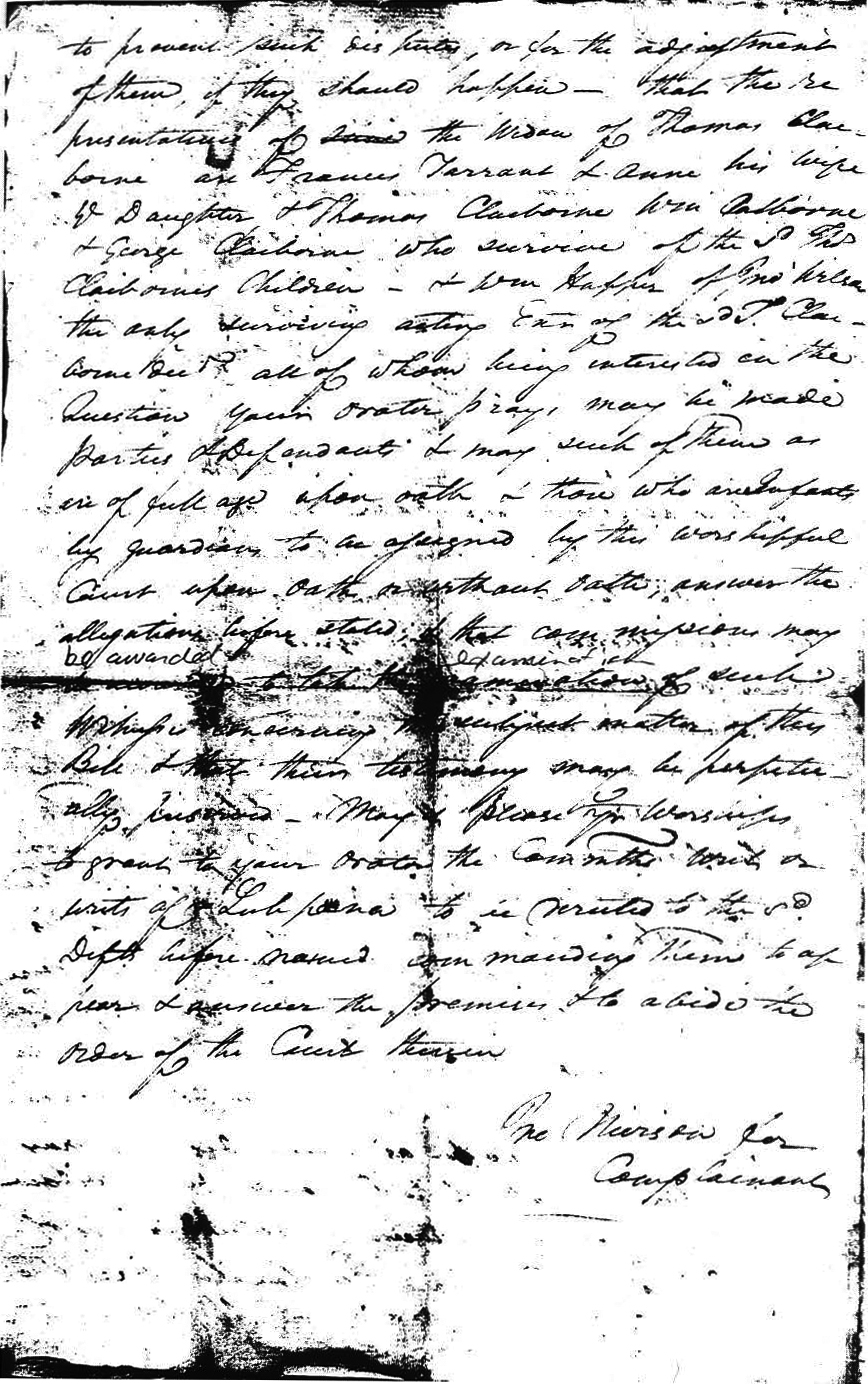 to prevent such disputes, or for the adjustment
of them, if they should happen — that the re
presentatives of the Widow of Thomas Clai-
borne are Francis Tarrant & Anne his Wife
Daughter & Thomas Claiborne Wm
& George Claiborne who survive of the sd Thos
Claibornes Children — & Wm Harper of Jno Wilson
the only surviving acting Exr of the sd T. Clai-
borne decd all of whom being interested in the
Question your orator prays may be made
parties & Defendants & may such of them as
are of full age upon oath & those who are Infants
by guardians to be assigned by this worshipful
Court upon oath or without oath, answer the
allegations before stated, & that commissions may
be awarded examination
to take the examination of such
Witnesses concerning the subject matter of this
Bill & that their testimony may be perpetu-
ally preserved — May it please yr Worships
to grant to your orator the Commths writ or
writs of Subpoena to be directed to the sd
Defts before named commanding them to ap
pear & answer the premises & to abide the
order of the Court therein
Jno Nivison for
Complainant